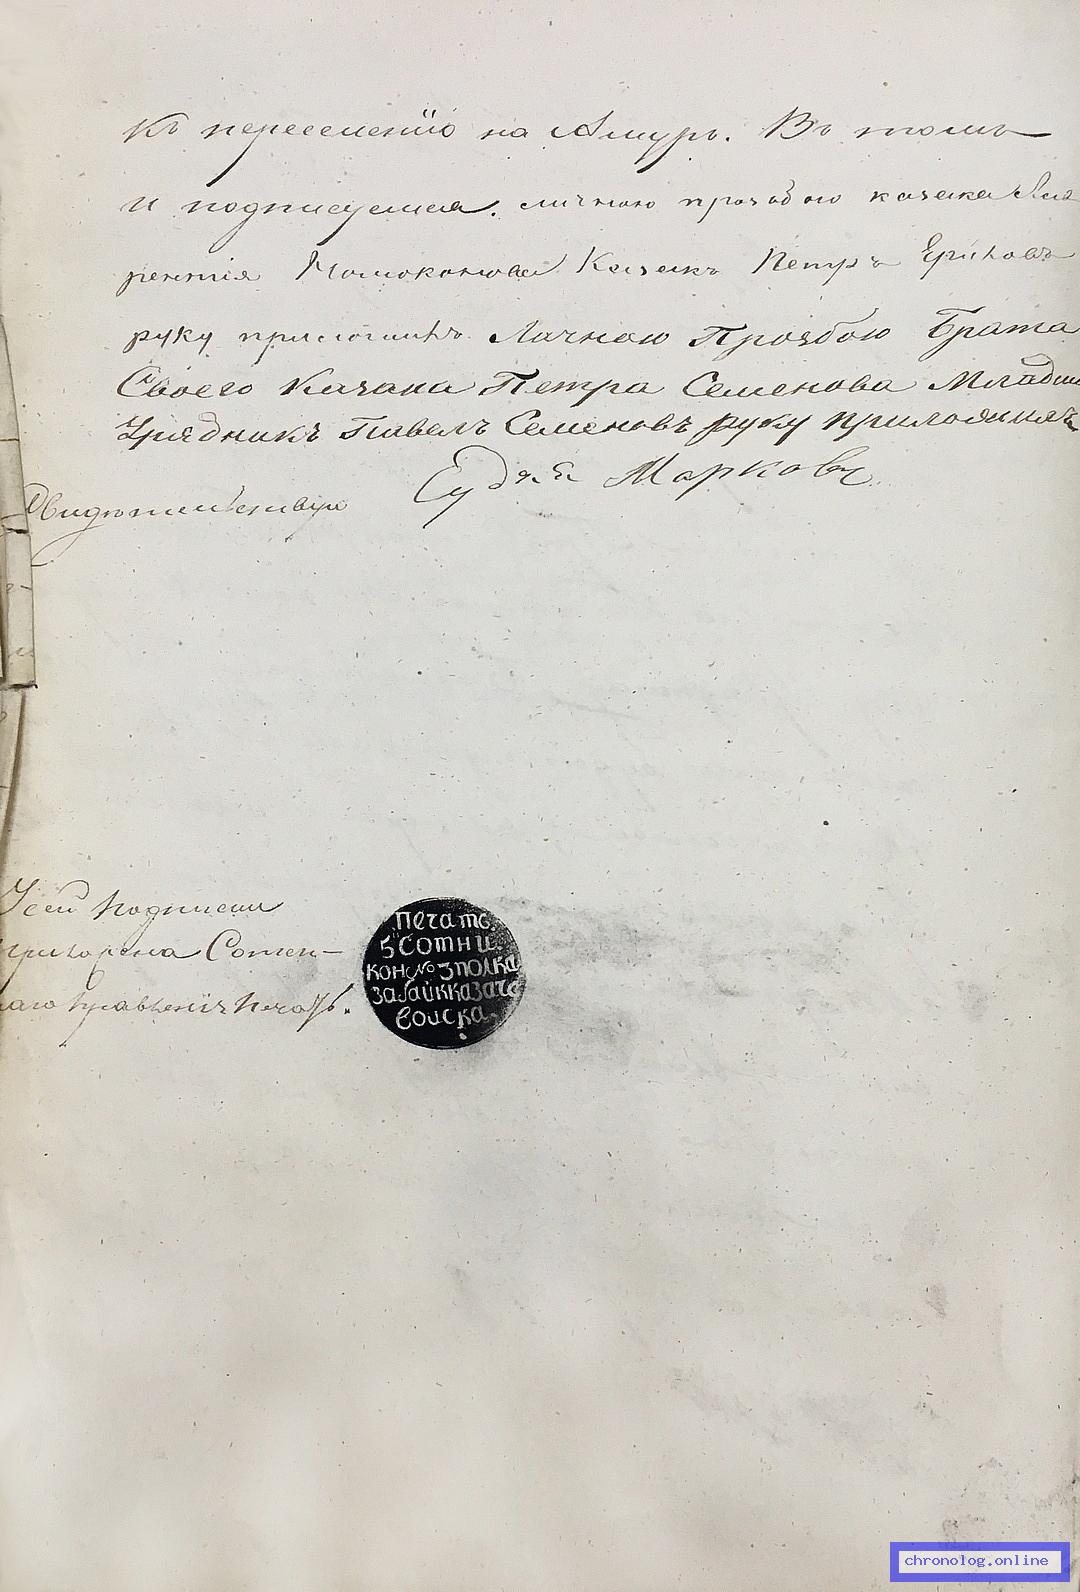 къ переселенiю на Амуръ. Въ томъ
и подписуемся. личною прозьбою казака Лав
рентiя Молоконова Казакъ Петръ
руку приложилъ. Личною Прозбою Брата
Своего Казака Петра Семенова Младшiй
Урядникъ Павелъ Семеновъ руку приложилъ
Судья Марковъ
Свидѣтельствую
У сей подписи
приложена Сотен-
наго Правленiя печать.
Печать
5й Сотни
Кон № 3 полка
Забайк казачь
Войска.
chronolog.online